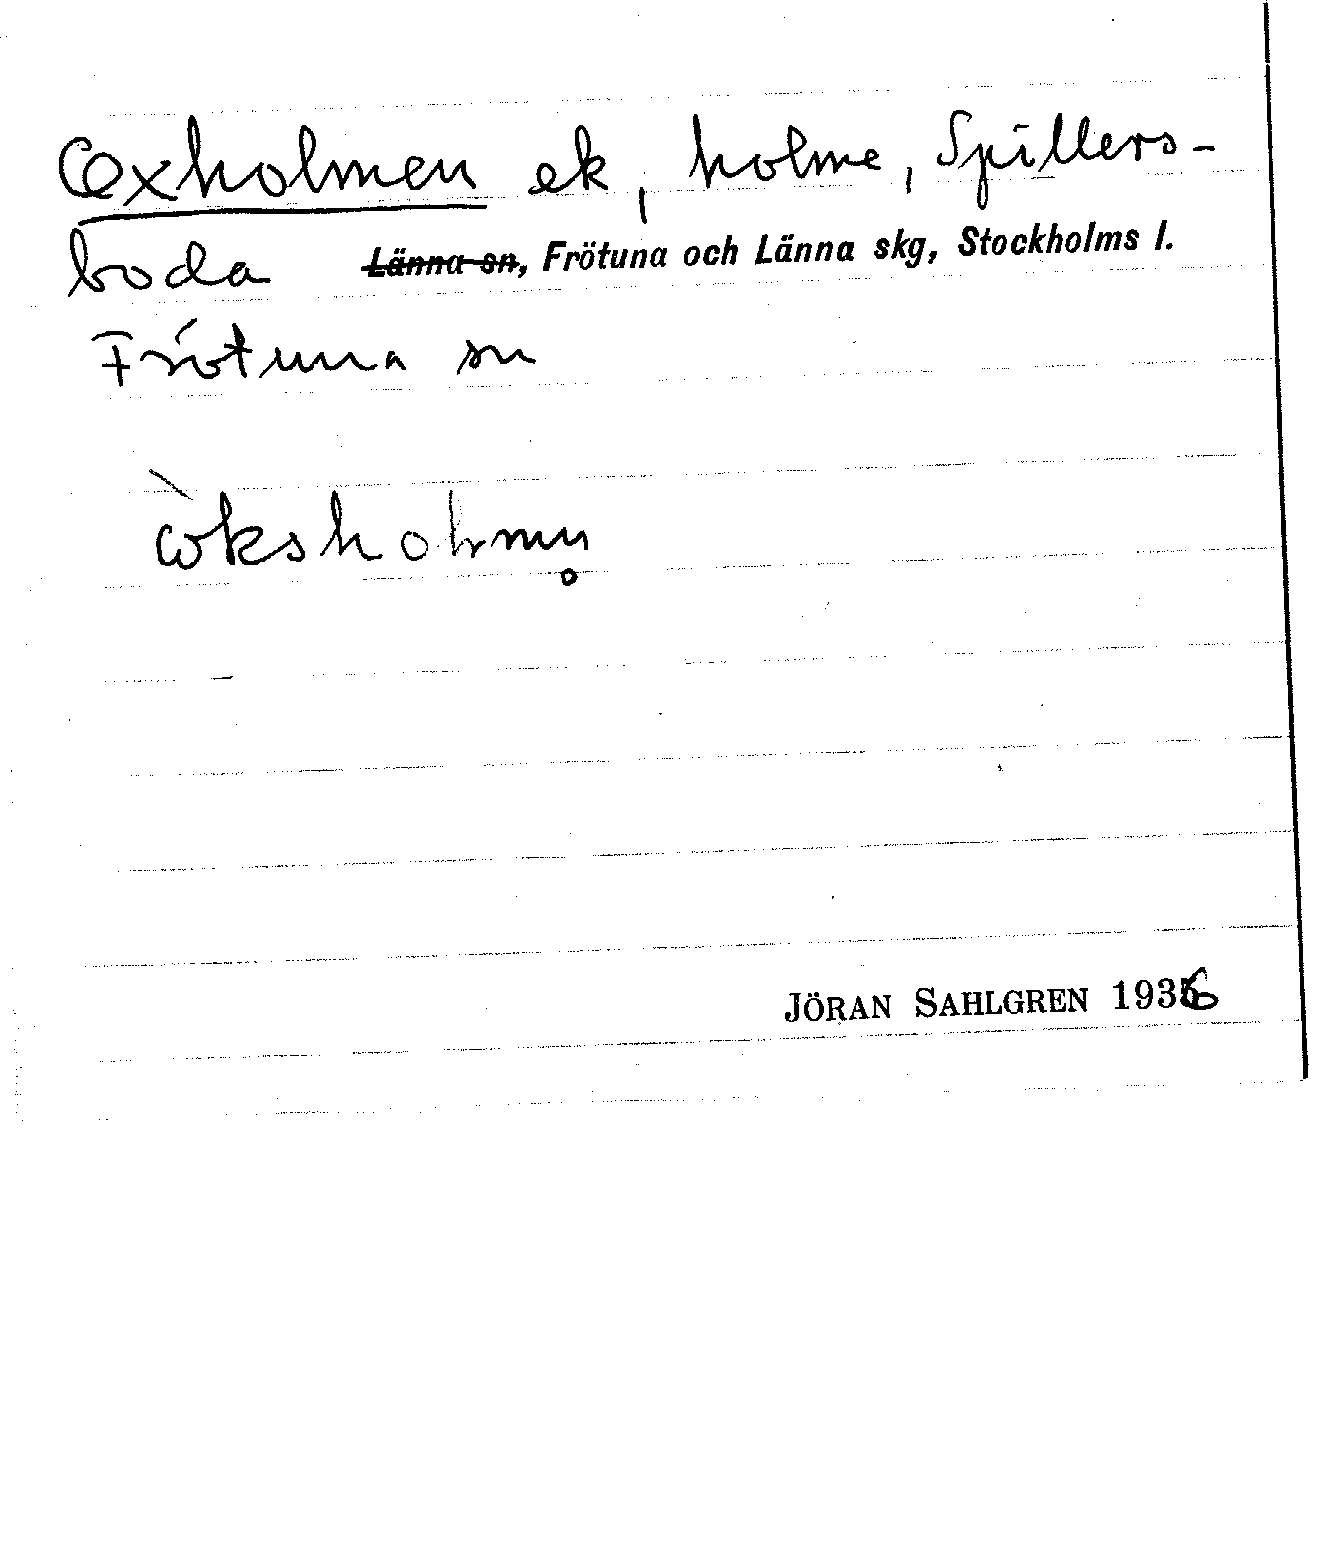 Oxholmen ek, holme, Spillers-
boda Länna sn, Frötuna och Länna skg, Stockholms l.
Frötuna sn
JÖRAN SAHLGREN 1936